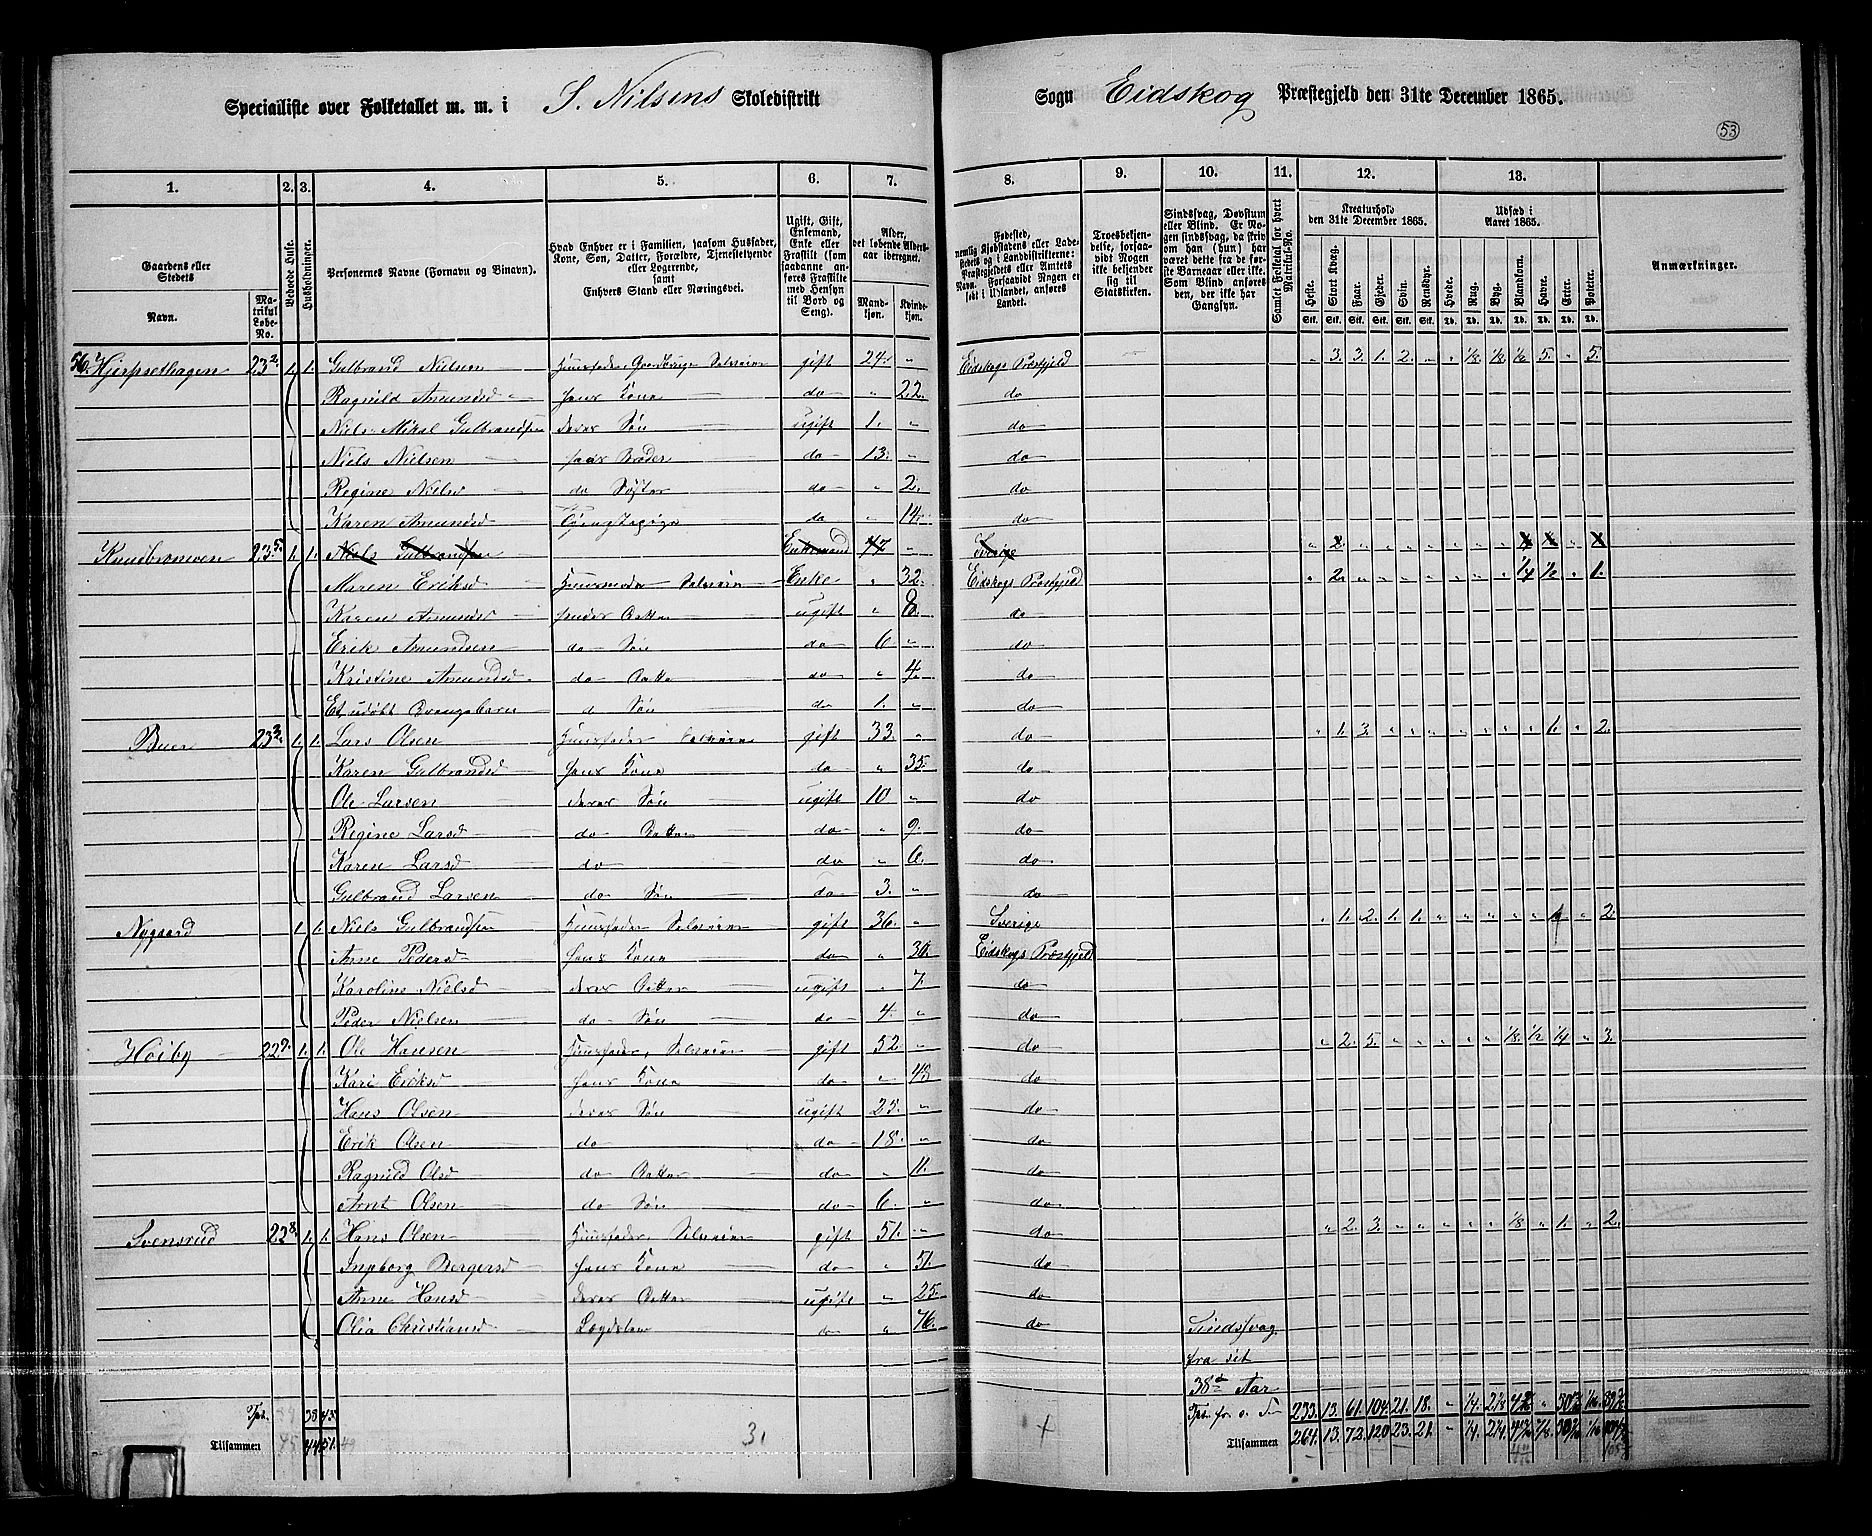 Specialliste over Folketallet m. m. i S. Nilsens Skoledistrikt Sogn Eidskog Præstegjeld den 31te December 1865.
53
1. 2. 3. 4. 5. 6. 7. 8. 9. 10. 11. 12. 13.
Gaardens eller Stedets
Navn.
Matrikul Løbe-No.
Beboede Huse.
Husholdninger.
Personernes Navne (Fornavn og Binavn).
Hvad Enhver er i Familien, saasom Husfader, Kone, Søn, Datter, Forældre, Tjenestetyende eller Logerende, samt Enhvers Stand eller Næringsvei.
Ugift, Gift, Enkemand, Enke eller Fraskilt (som saadanne anføres Fraskilte med Hensyn til Bord og Seng).
Alder, det løbende Aldersaar iberegnet.
Mandkjøn. Kvindekjøn.
Fødested,
Troesbekjendelse, forsaavidt Nogen ikke bekjender sig til Statskirken.
Sindssvag, Døvstum eller Blind.
Samlet Folketal for hvert Matrikul-No.
Kreaturhold den 31te December 1865.
Udsæd i Aaret 1865.
Heste. Stort Kvæg. Faar. Gjeder. Svin. Rensdyr. Hvede. Rug. Byg. Blandkorn. Havre. Erter. Poteter.
Anmærkninger.
Hjerpsethagen 23 2 1. 1. Gulbrand Nielsen Huusfader, Gaardbruger Selveier gift 24. " Eidskogs Præstgjeld " 3. 3. 1. 2. " " 1/8 1/8 1/2 5. " 5.
Ragnild Amundsd hans Kone do " 22. do
Niels Mikal Gulbrandsen deres Søn ugift 1. " do
Niels Nielsen hans Broder do 13. " do
Regine Nielsd do Søster do " 2. do
Karen Amundsd do " 14. do
23 5. 1. 1. Niels Gulbrandsen Enkemand 42 " Sverige
Maren Eriksd Huusmoder Selveier Enke " 32. Eidskogs Præstgjeld " 2. " " " " " " " 1/4 1/2 " 1.
Karen Amundsd hendes Datter ugift " 8. do
Erik Amundsen do Søn do 6 " do
Kristine Amundsd do Datter do " 4. do
Et udøbt Drengebarn d Søn do 1. " do
Buer 23 3. 1. 1. Lars Olsen Huusfader Selveier gift 33. " do " 1. 3. " " " " " " " 1. " 2.
Karen Gulbrandsd hans Kone do " 35. do
Ole Larsen deres Søn ugift 10 " do
Regine Larsd do Datter do " 9. do
Karen Larsd do do " 6. do
Gulbrand Larsen do Søn do 3. " do
Nygaard 1. 1. Niels Gulbrandsen Huusfader Selveier gift 36. " Sverige " 1. 2. 1. 1. " " " " " 1 " 2.
Anne Pedersd hans Kone do " 30. Eidskogs Præstgjeld
Karoline Nielsd deres Datter ugift " 7. do
Peder Nielsen do Søn do 4 " do
Høiby 22 9. 1. 1. Ole Hansen Huusfader, Selveier gift 52. " do " 2. 5. " " " " " 1/8. 1/2 1/4 " 3.
Kari Eriksd hans Kone do " do
Hans Olsen deres Søn ugift 25. " do
Erik Olsen do do 18. " do
Ragnild Olsd do Datter do " 11. do
Arnt Olsen do Søn do 6. " do
Svensrud 22 8. 1. 1. Hans Olsen Huusfader, Selveier gift 51. " do " 2. 3. " " " " " 1/8 " 1. " 2.
Ingborg Bergersd hans Kone do " 51. do
Anne Hansd deres Datter ugift " 25. do
Olia Christiansd Lægdslem do " 76. do Sindssvag
fra sit
38de Aar
Tpt. 38 43 Tpt. fr. s. S 233. 13. 61. 104. 21. 18. " 1/4.
Tilsammen 44 51. 3. + Tilsammen 264. 13. 72. 120 23. 21. " 1/4.